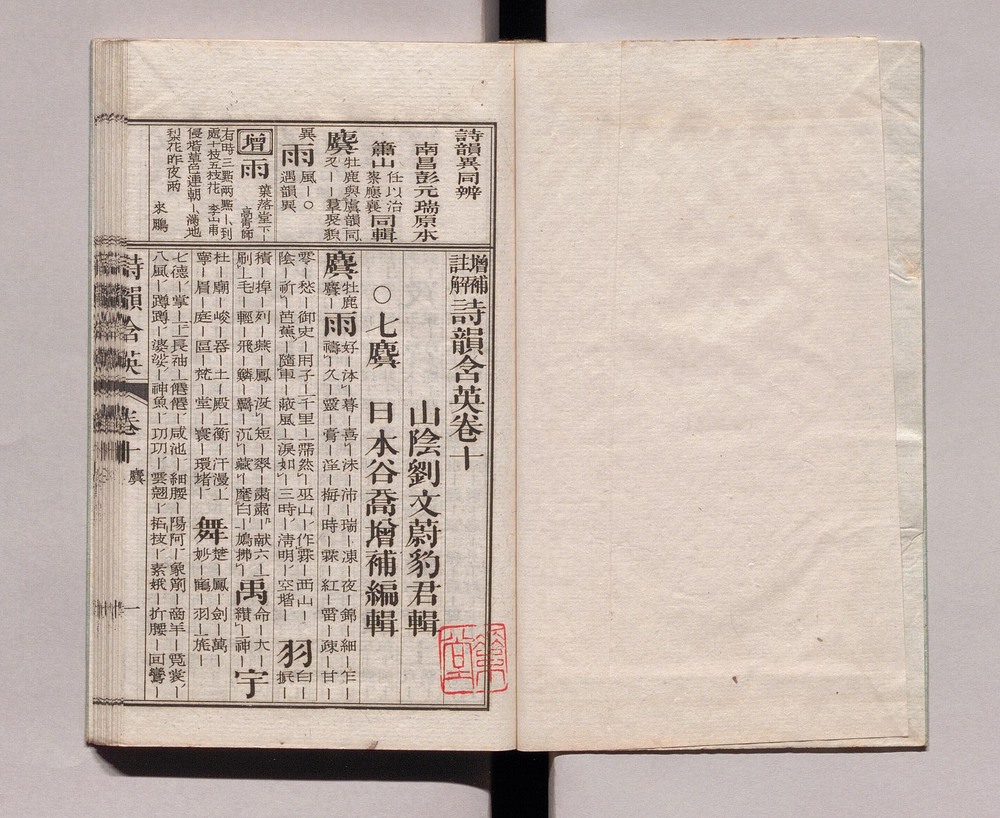 詩韻異同辨
南昌彭元瑞原本
蕭山任以治蔡應襄同輯
麌牡鹿與虞韻同
又――羣聚貌
異雨風―○
遇韻異
增雨葉落堂下―
有時三點兩點―到
處十枝五枝花 李山甫
侵堦草色連朝―滿地
梨花昨夜雨 來鵬
增補註解詩韻含英卷十
山陰劉文蔚豹君輯
○七麌 日本谷喬增補編輯
麌牡鹿麌―雨好―沐―暮―喜―沬―沛―瑞―凍―夜―錦―細―乍―
禱―久―靈―膏―淫―梅―時―霖―紅―雷―疎―甘―
零―愁―御史―用子―千里―霈然―巫山―作霖―西山―
陰―祈―芭蕉―隨車―蔽風―淚如―三時―清明―空堦―羽白―振―
積―掉―列―燕―鳳―短―翠―肅肅―献六―禹命―大―
刷―毛―輕―飛―鱗―沉―藏―麾白―鳩拂―讚―神―宇
杜―廟―峻―器―土―殿―衡―汗漫―舞楚―鳳―劍―萬―
寧―眉―庭―區―梵―堂―寰―環堵―妙―鶴―羽―旄―
七德―掌上―長袖―僊僊―咸池―細腰―陽阿―象箾―商羊―霓裳―
八風―蹲蹲―婆娑―神魚―雲翹―拓枝―素娥―折腰―回鸞―
詩韻含英 卷十 麌 一